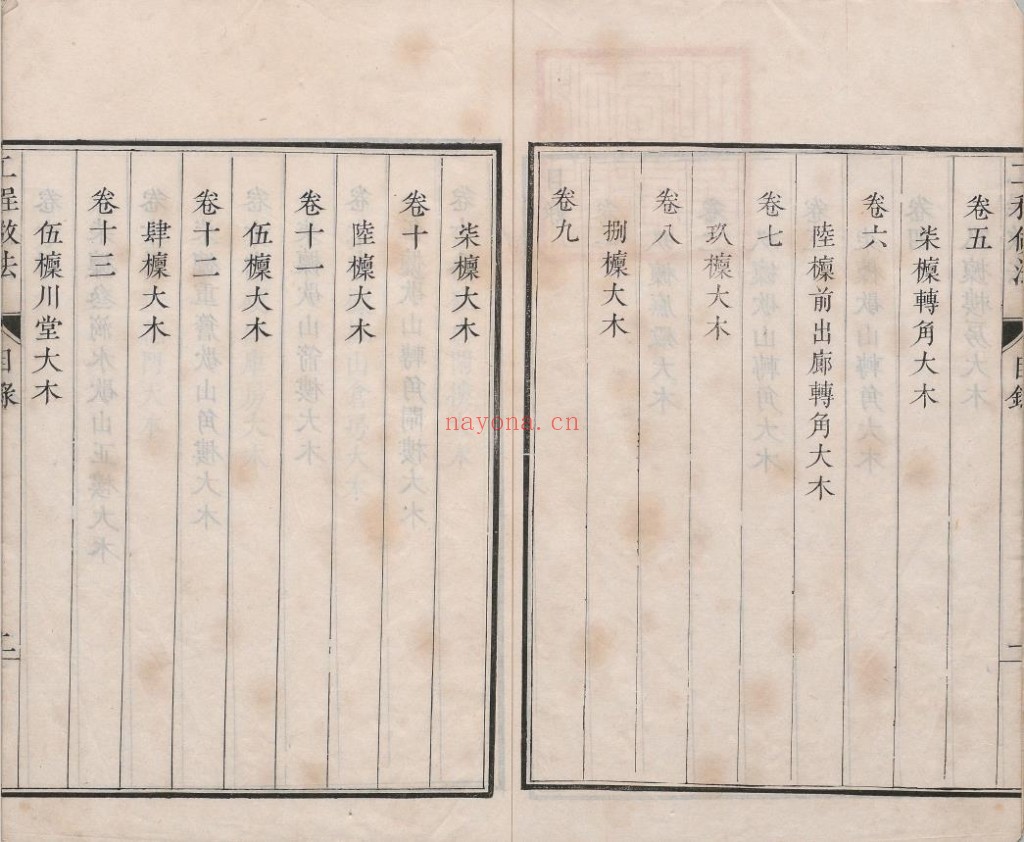 卷五
柒檁轉角大木
卷六
陸檁前出廊轉角大木
卷七
玖檁大木
卷八
捌檁大木
卷九
柒檁大木
卷十
陸檁大木
卷十一
伍檁大木
卷十二
肆檁大木
卷十三
伍檁川堂大木
工程做法
目錄
二
nayona.cn